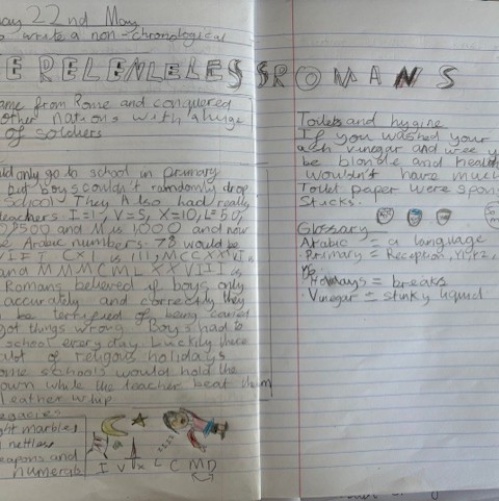 22nd May
write a non-chronological
RELENLELESS ROMANS
came from Rome and conquered
other nations with a huge
of soldiers
only go to school in primary
but boys couldn't randomly drop
school. They Also had really
teachers. I=1, V=5, X=10, L=50,
and M is 1000 and now
Arabic numbers. 78 would be
CXI is 111, MCCXXVI
and MMMCMLXXVIII is
Romans believed if boys only
accurately and correctly they
be of being caned
got things wrong. Boys had to
school every day. Luckily there
alot of religous holidays
some schools would hold the
down while the teacher beat them
leather whip
legacies
marbles
nettles
weapons and
numerals
I V X L C M D
Toilets and hygine
If you washed your
vinegar and wee
be blonde and
wouldn't have much
Toilet paper were
Sticks.
Glossary
Arabic = a language
Primary = Reception, Y1, Y2,
Holidays = breaks
Vinegar = stinky liquid